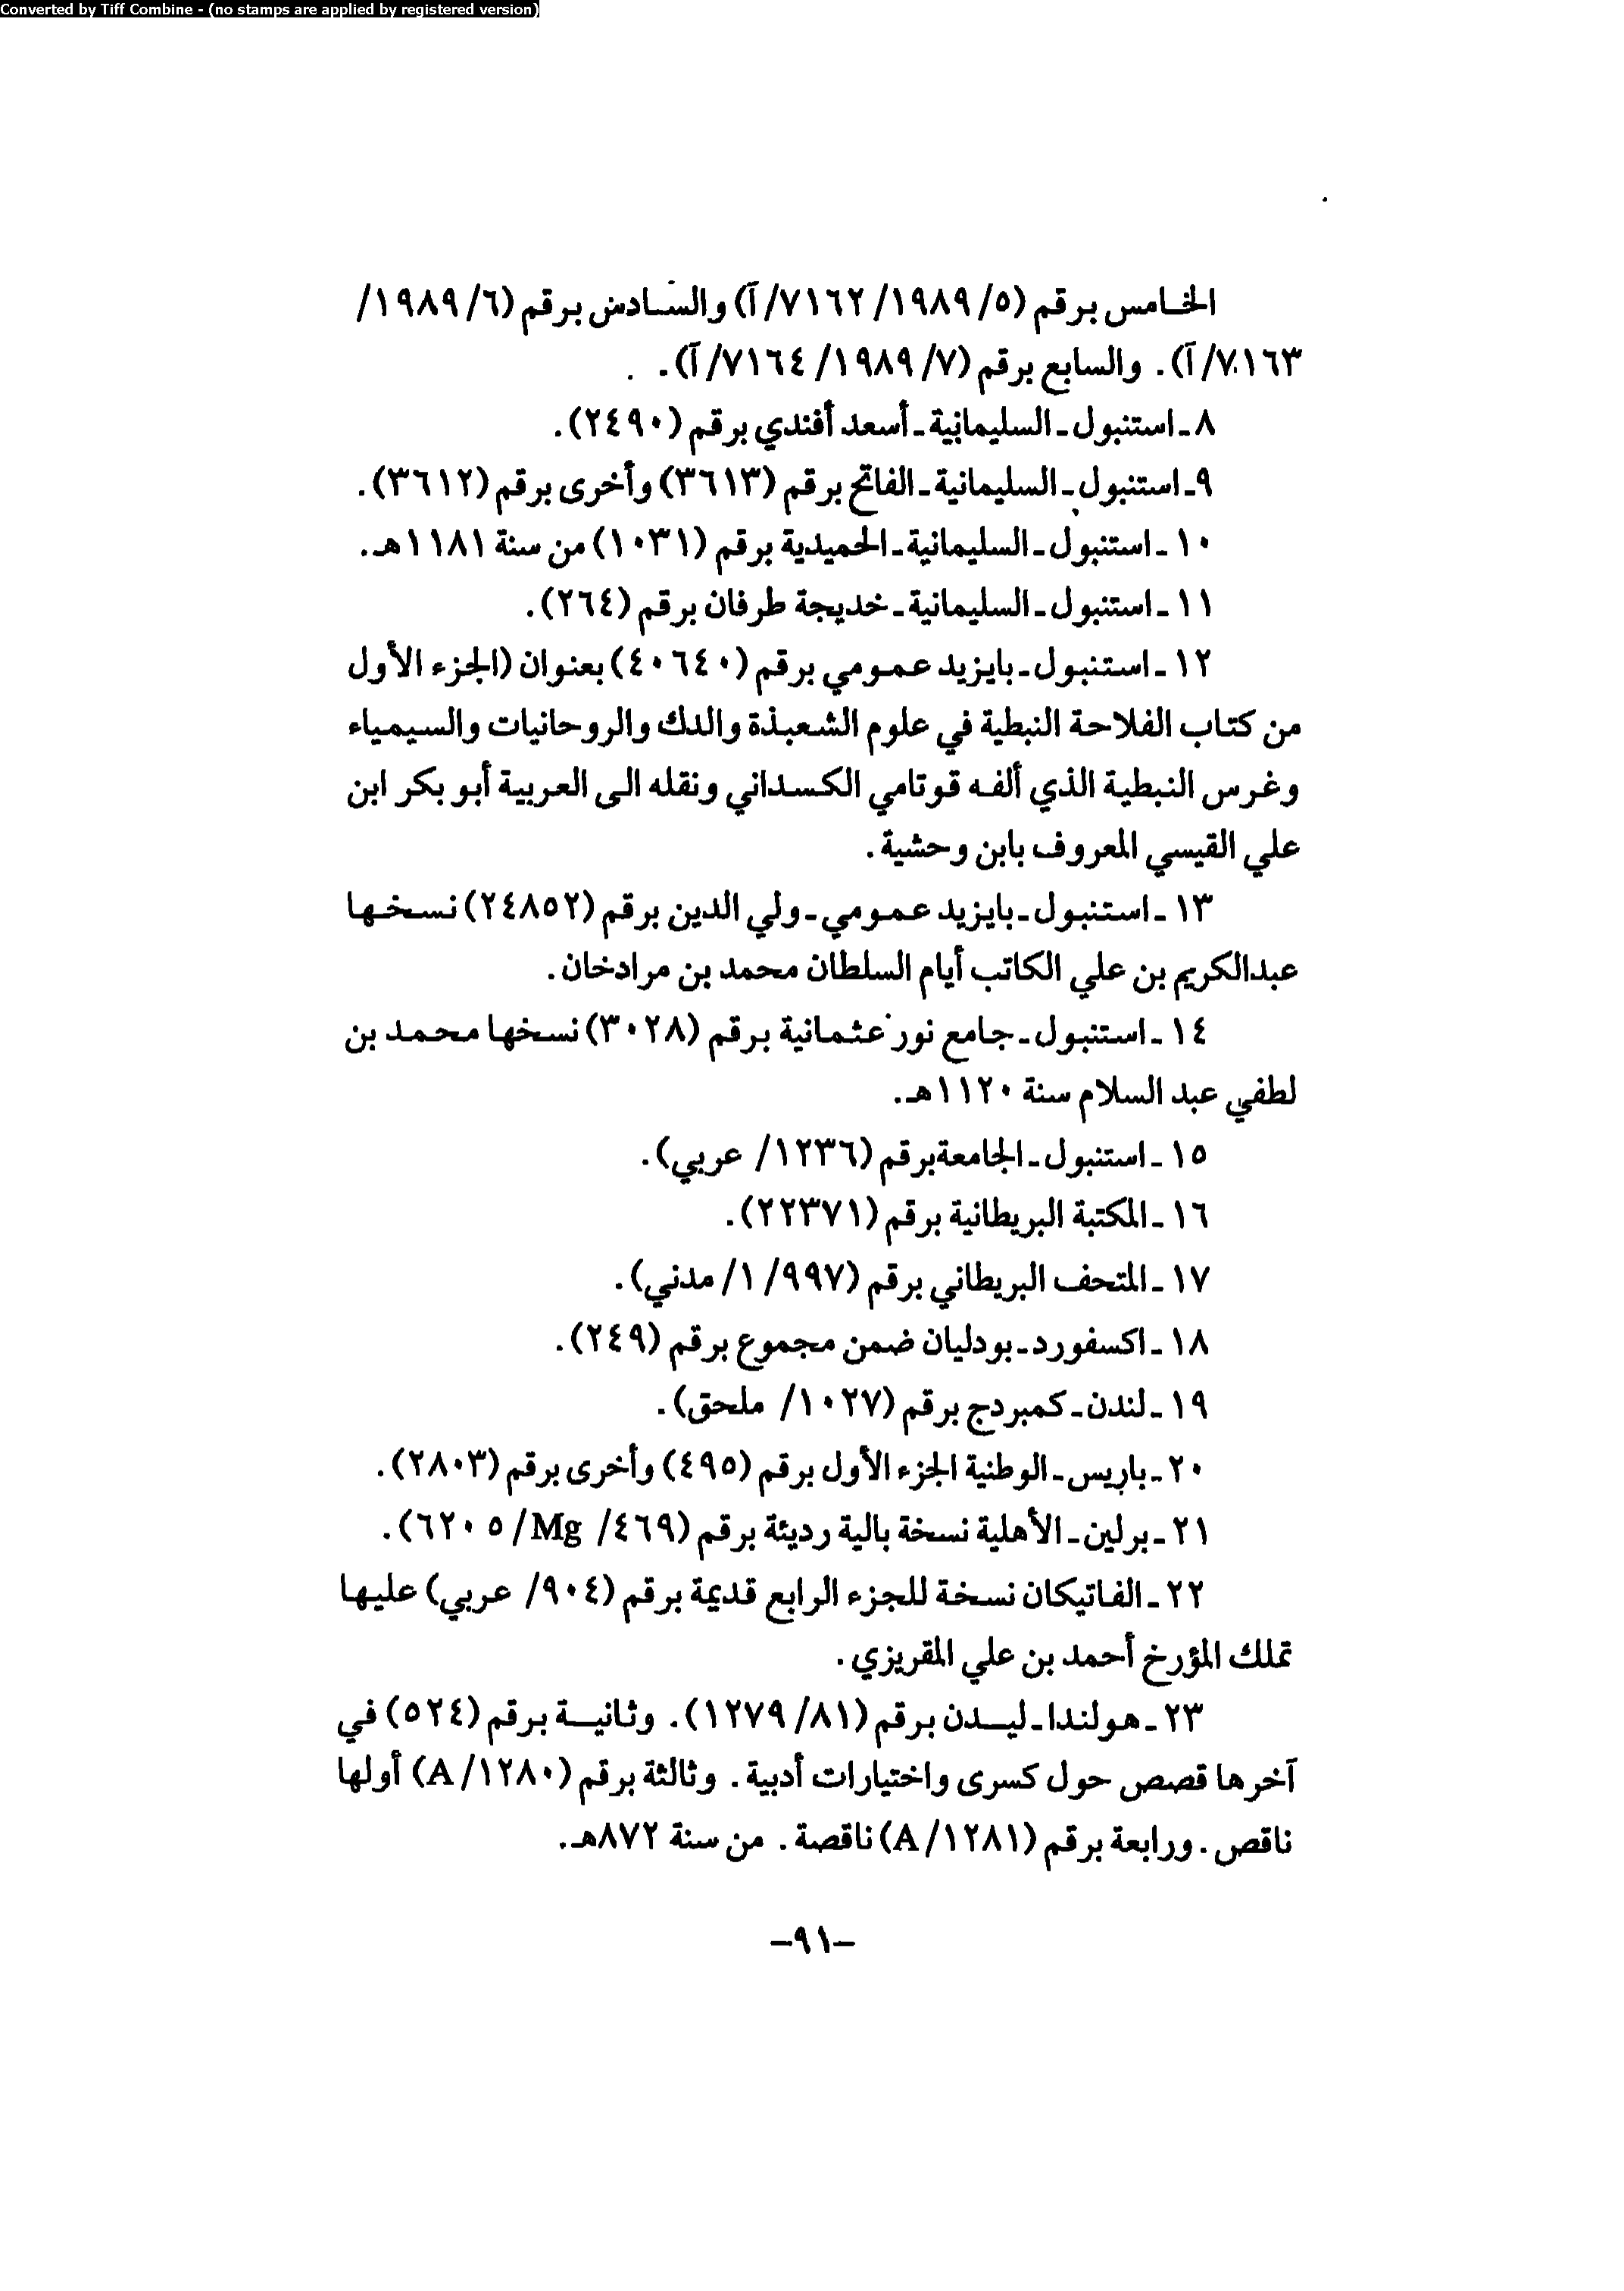 Converted by Tiff Combine - (no stamps are applied by registered version)
الخامس برقم (٥/ ١٩٨٩/ ٧١٦٢/ آ) والسادس برقم (٦/ ١٩٨٩/
٧١٦٣/ آ). والسابع برقم (٧/ ١٩٨٩/ ٧١٦٤/ آ).
٨ ـ استنبول ـ السليمانية ـ أسعد أفندي برقم (٢٤٩٠).
٩ـ استنبول ـ السليمانية ـ الفاتح برقم (٣٦١٣) وأخرى برقم (٣٦١٢).
١٠ ـ استنبول ـ السليمانية ـ الحميدية برقم (١٠٣١) من سنة ١١٨١هـ.
١١ ـ استنبول ـ السليمانية ـ خديجة طرفان برقم (٢٦٤).
١٢ ـ استنبول ـ بايزيد عمومي برقم (٤٠٦٤٠) بعنوان (الجزء الأول
من كتاب الفلاحة النبطية في علوم الشعبذة والدك والروحانيات والسيمياء
وغرس النبطية الذي ألفه قوتامي الكسداني ونقله الى العربية أبو بكر ابن
علي القيسي المعروف بابن وحشية.
١٣ ـ استنبول ـ بايزيد عمومي ـ ولي الدين برقم (٢٤٨٥٢) نسخها
عبدالكريم بن علي الكاتب أيام السلطان محمد بن مرادخان.
١٤ ـ استنبول ـ جامع نور عثمانية برقم (٣٠٢٨) نسخها محمد بن
لطفي عبد السلام سنة ١١٢٠هـ.
١٥ ـ استنبول ـ الجامعة برقم (١٢٣٦/ عربي).
١٦ ـ المكتبة البريطانية برقم (٢٢٣٧١).
١٧ ـ المتحف البريطاني برقم (٩٩٧/ ١/ مدني).
١٨ ـ اكسفورد ـ بودليان ضمن مجموع برقم (٢٤٩).
١٩ ـ لندن ـ كمبردج برقم (١٠٢٧/ ملحق).
٢٠ ـ باريس ـ الوطنية الجزء الأول برقم (٤٩٥) وأخرى برقم (٢٨٠٣).
٢١ ـ برلين ـ الأهلية نسخة بالية رديئة برقم (٤٦٩/ Mg/ ٦٢٠٥).
٢٢ ـ الفاتيكان نسخة للجزء الرابع قديمة برقم (٩٠٤/ عربي) عليها
تملك المؤرخ أحمد بن علي المقريزي.
٢٣ ـ هولندا ـ ليدن برقم (٨١/ ١٢٧٩). وثانية برقم (٥٢٤) في
آخرها قصص حول كسرى واختيارات أدبية. وثالثة برقم (١٢٨٠/ A) أولها
ناقص. ورابعة برقم (١٢٨١/ A) ناقصة. من سنة ٨٧٢هـ.
–٩١–